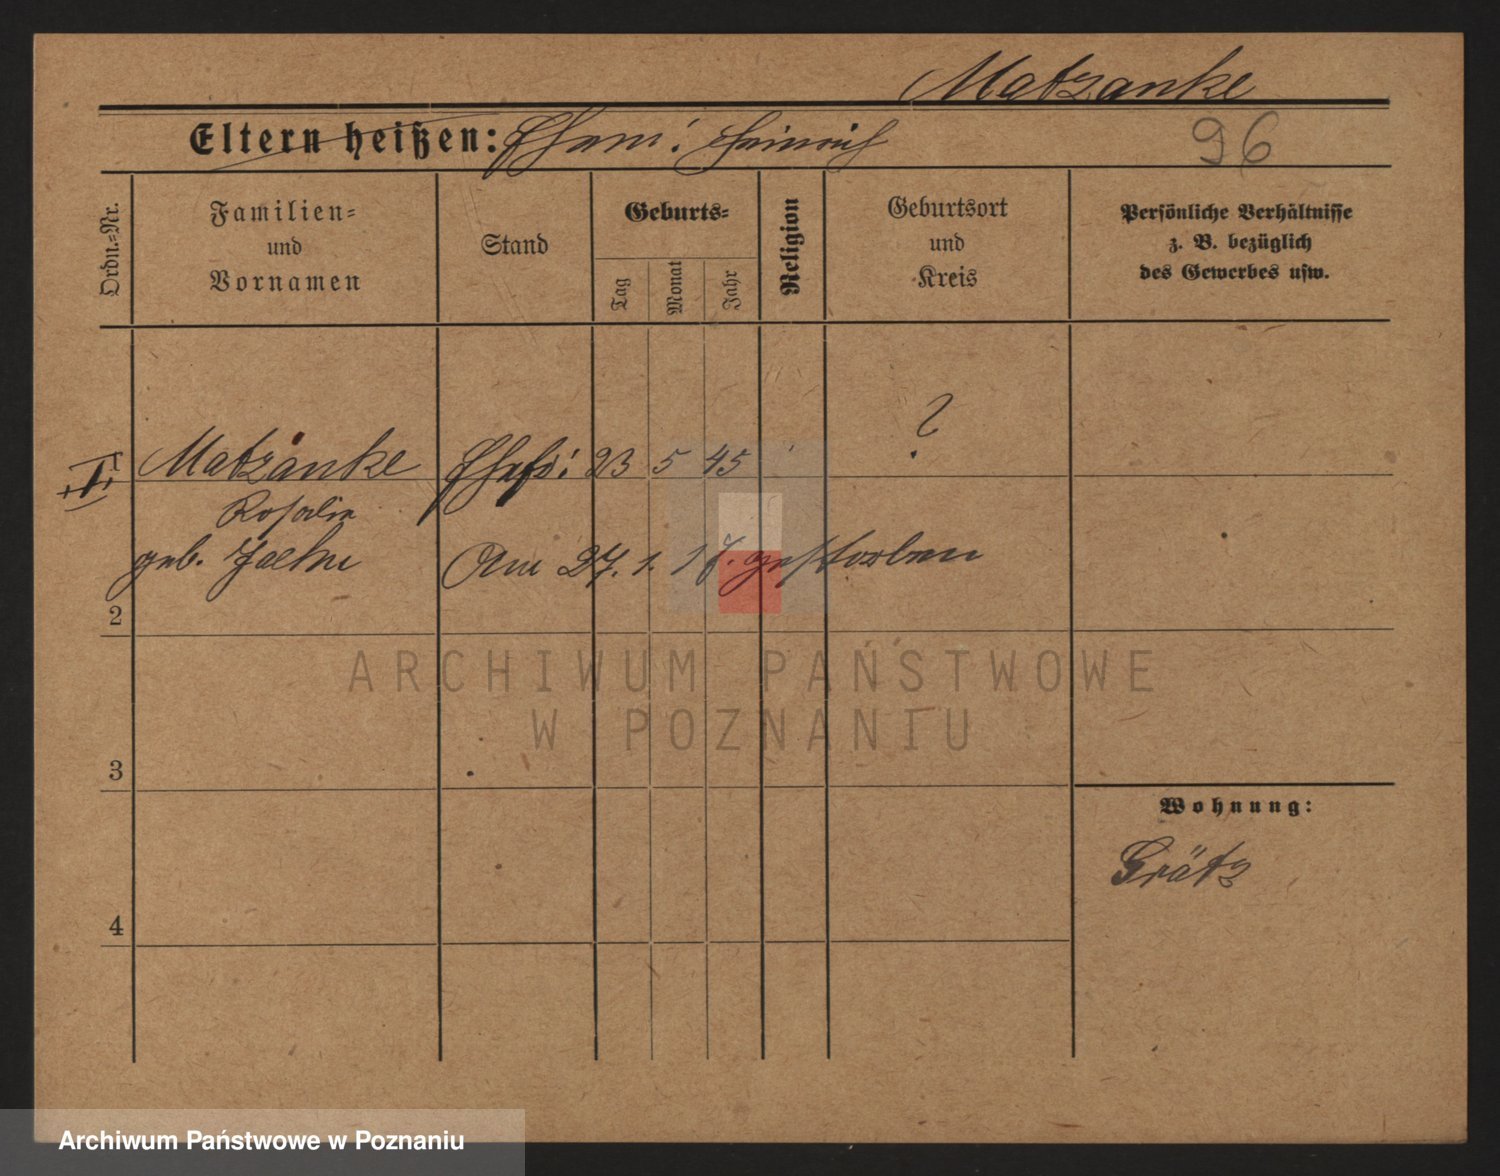 Matzanke
Eltern heißen: Ehem: Heinrich
96
Ordn.=Nr.
Familien=
und
Vornamen
Stand
Geburts=
Tag
Monat
Jahr
Religion
Geburtsort
und
Kreis
Persönliche Verhältnisse
z. B. bezüglich
des Gewerbes usw.
Matzanke
23 5 45
?
Rosalie
geb.
Am 27. 1. 17. gestorben
2
3
4
Wohnung:
Grätz
ARCHIWUM PAŃSTWOWE
W POZNANIU
Archiwum Państwowe w Poznaniu